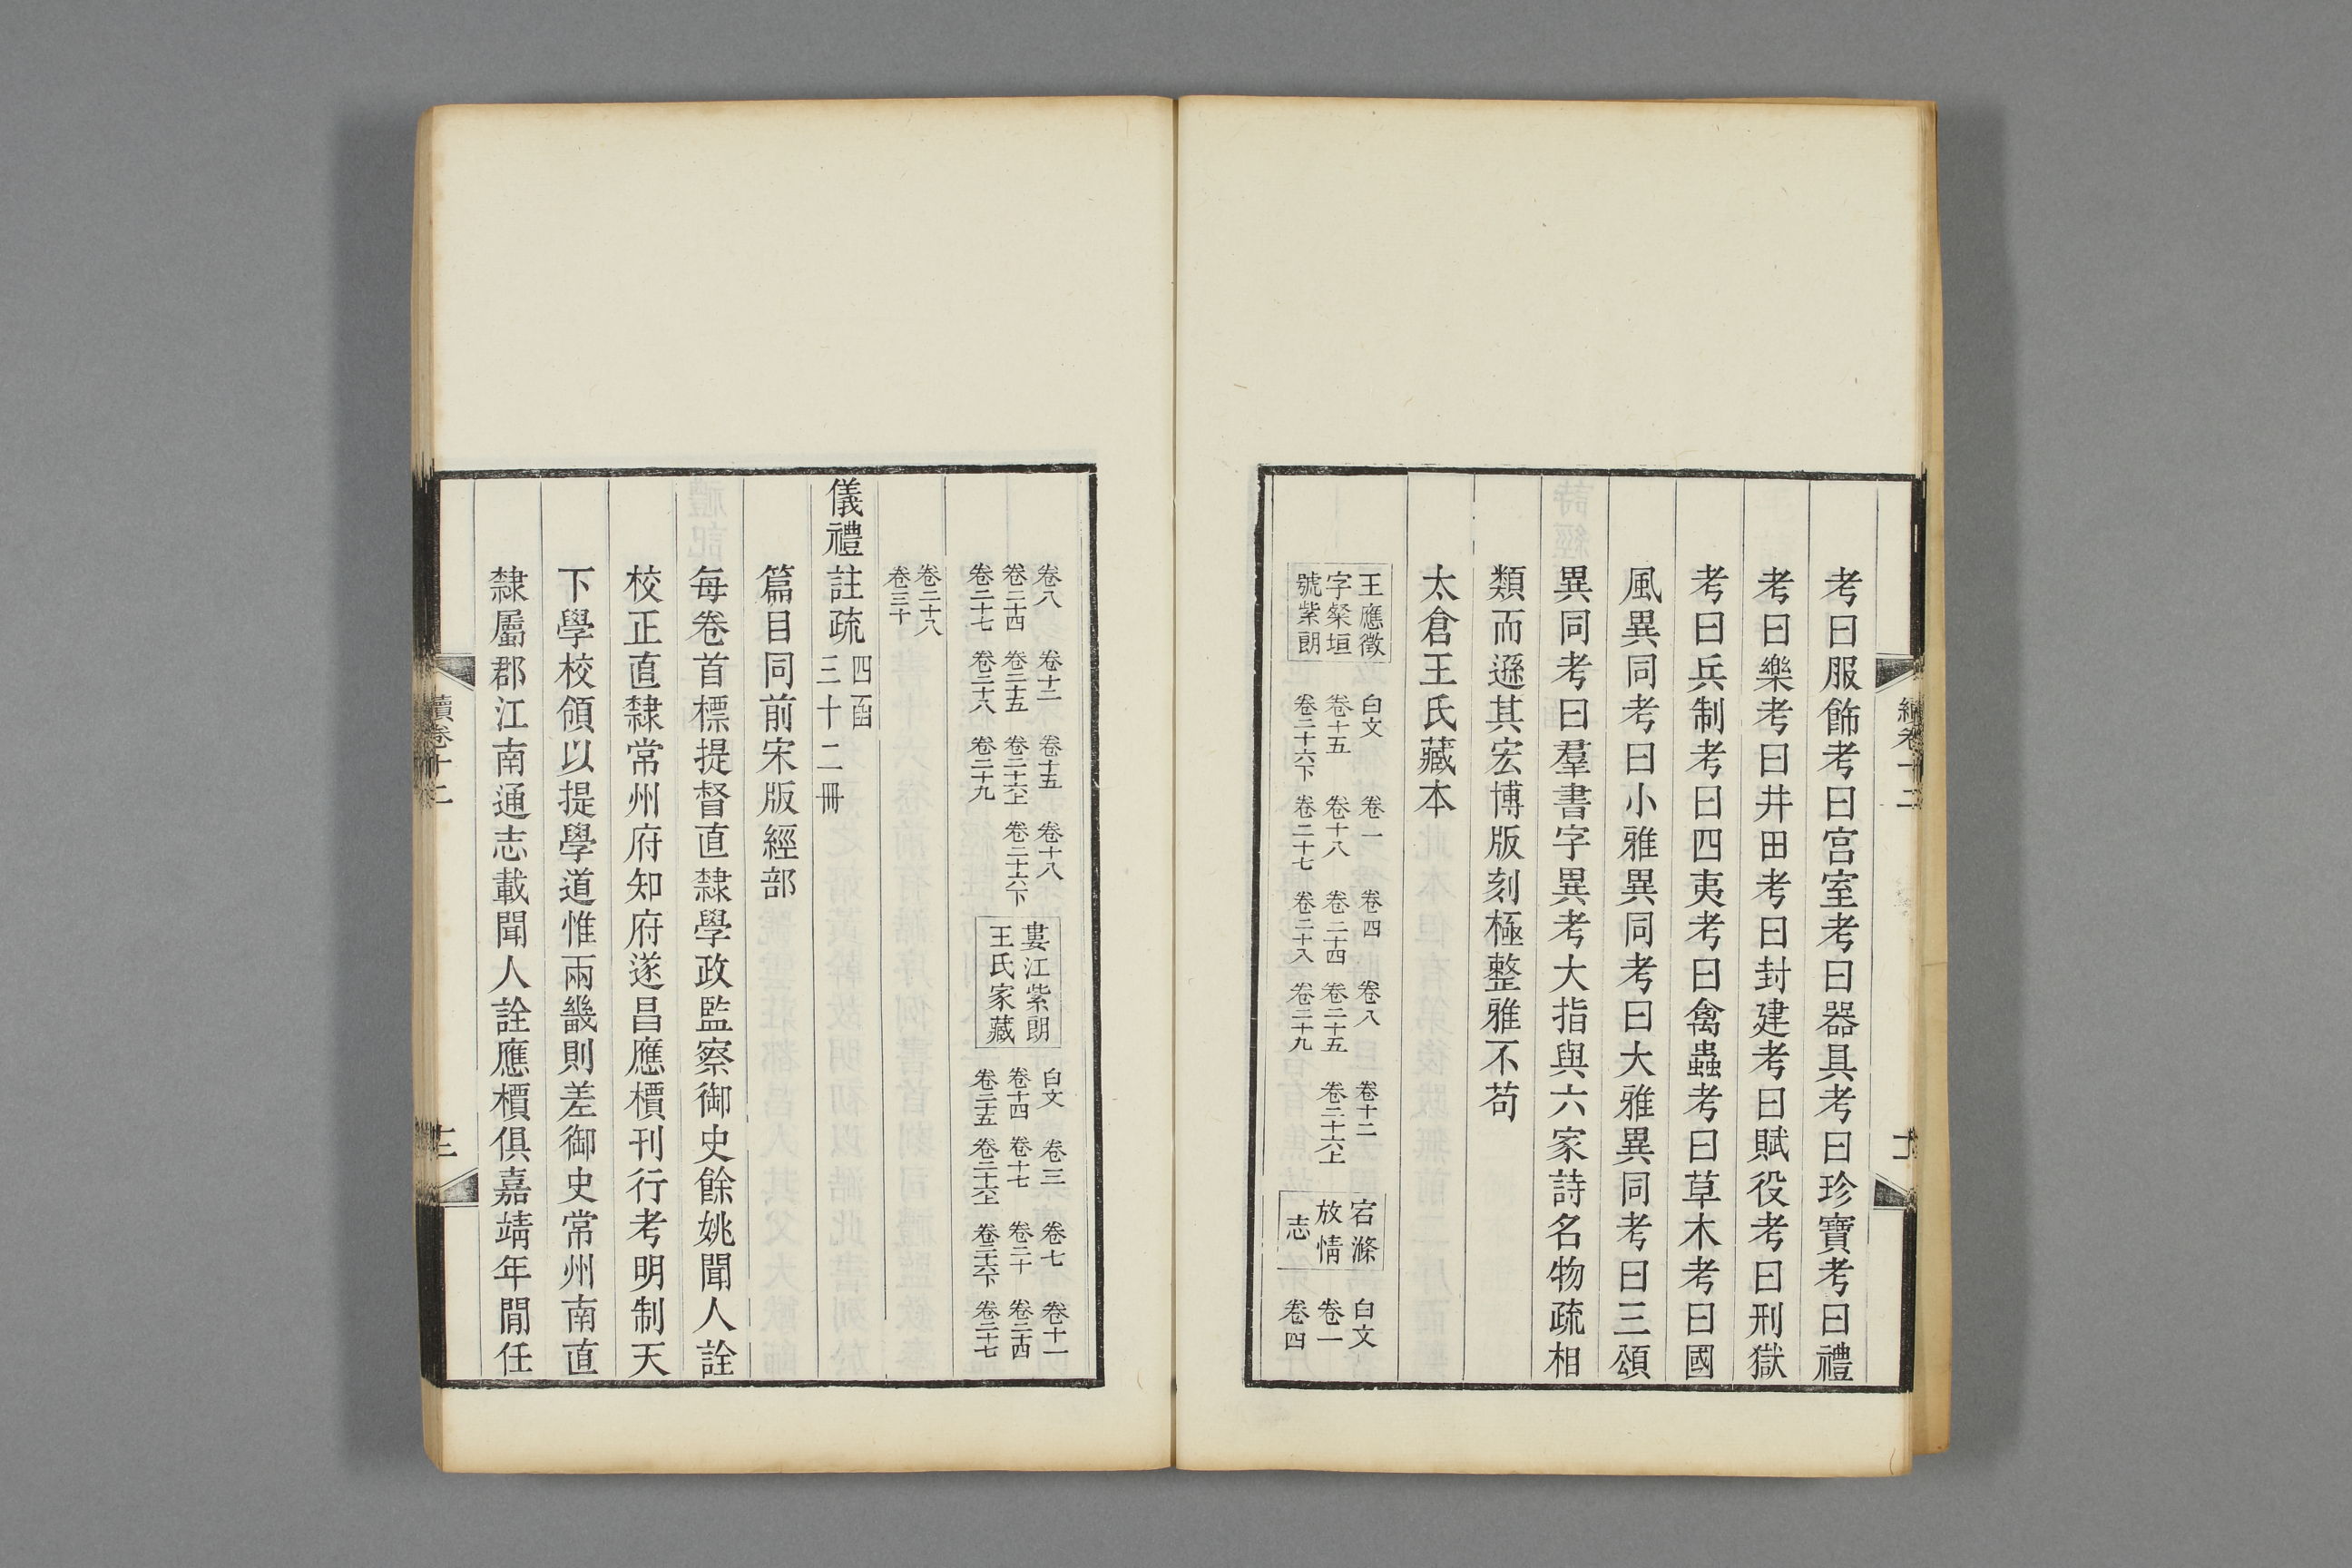 考曰服飾考曰宮室考曰器具考曰珍寶考曰禮
考曰樂考曰井田考曰封建考曰賦役考曰刑獄
考曰兵制考曰四夷考曰禽蟲考曰草木考曰國
風異同考曰小雅異同考曰大雅異同考曰三頌
異同考曰羣書字異考大指與六家詩名物疏相
類而遜其宏博版刻極整雅不苟
太倉王氏藏本
王應徵
字粲垣
號紫朗
白文 卷一 卷四 卷八 卷十二
卷十五 卷十八 卷二十四 卷二十五 卷二十六上
卷二十六下 卷二十七 卷二十八 卷二十九
宕滌
放情
志
白文
卷一
卷四
卷八 卷十二 卷十五 卷十八
卷二十四 卷二十五 卷二十六上 卷二十六下
卷二十七 卷二十八 卷二十九
婁江紫朗
王氏家藏
白文 卷三 卷七 卷十一
卷十四 卷十七 卷二十 卷二十四
卷二十五 卷二十六上 卷二十六下 卷二十七
卷二十八
卷三十
儀禮註疏 四函
三十二冊
篇目同前宋版經部
每卷首標提督直隸學政監察御史餘姚聞人詮
校正直隸常州府知府遂昌應檟刊行考明制天
下學校領以提學道惟兩畿則差御史常州南直
隸屬郡江南通志載聞人詮應檟俱嘉靖年閒任
續卷十二